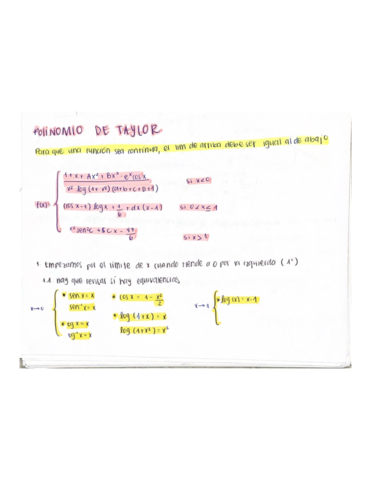 POLINOMIO DE TAYLOR
Para que una función sea continua, el lim de arriba debe ser igual al de abajo
1 + x + Ax² + Bx³ - eˣ cos x,
x² log (1 + x²) (a+b+c+D+1)
si x<0
f(x)=
(cos x-1) log x + 1/b + dx (x-1)
si 0<x≤1
si x>1
1 Empezamos por el límite de x cuando tiende a 0 por la izquierda (1ˢ)
1.1 Hay que revisar si hay equivalencias.
x→0
* sen x = x
* cos x = 1 - x²/2
x→1
* log (x) = x-1
sen⁻¹ x = x
* tg x = x
* log (1+x) = x
tg⁻¹ x = x
log (1+x²) = x²